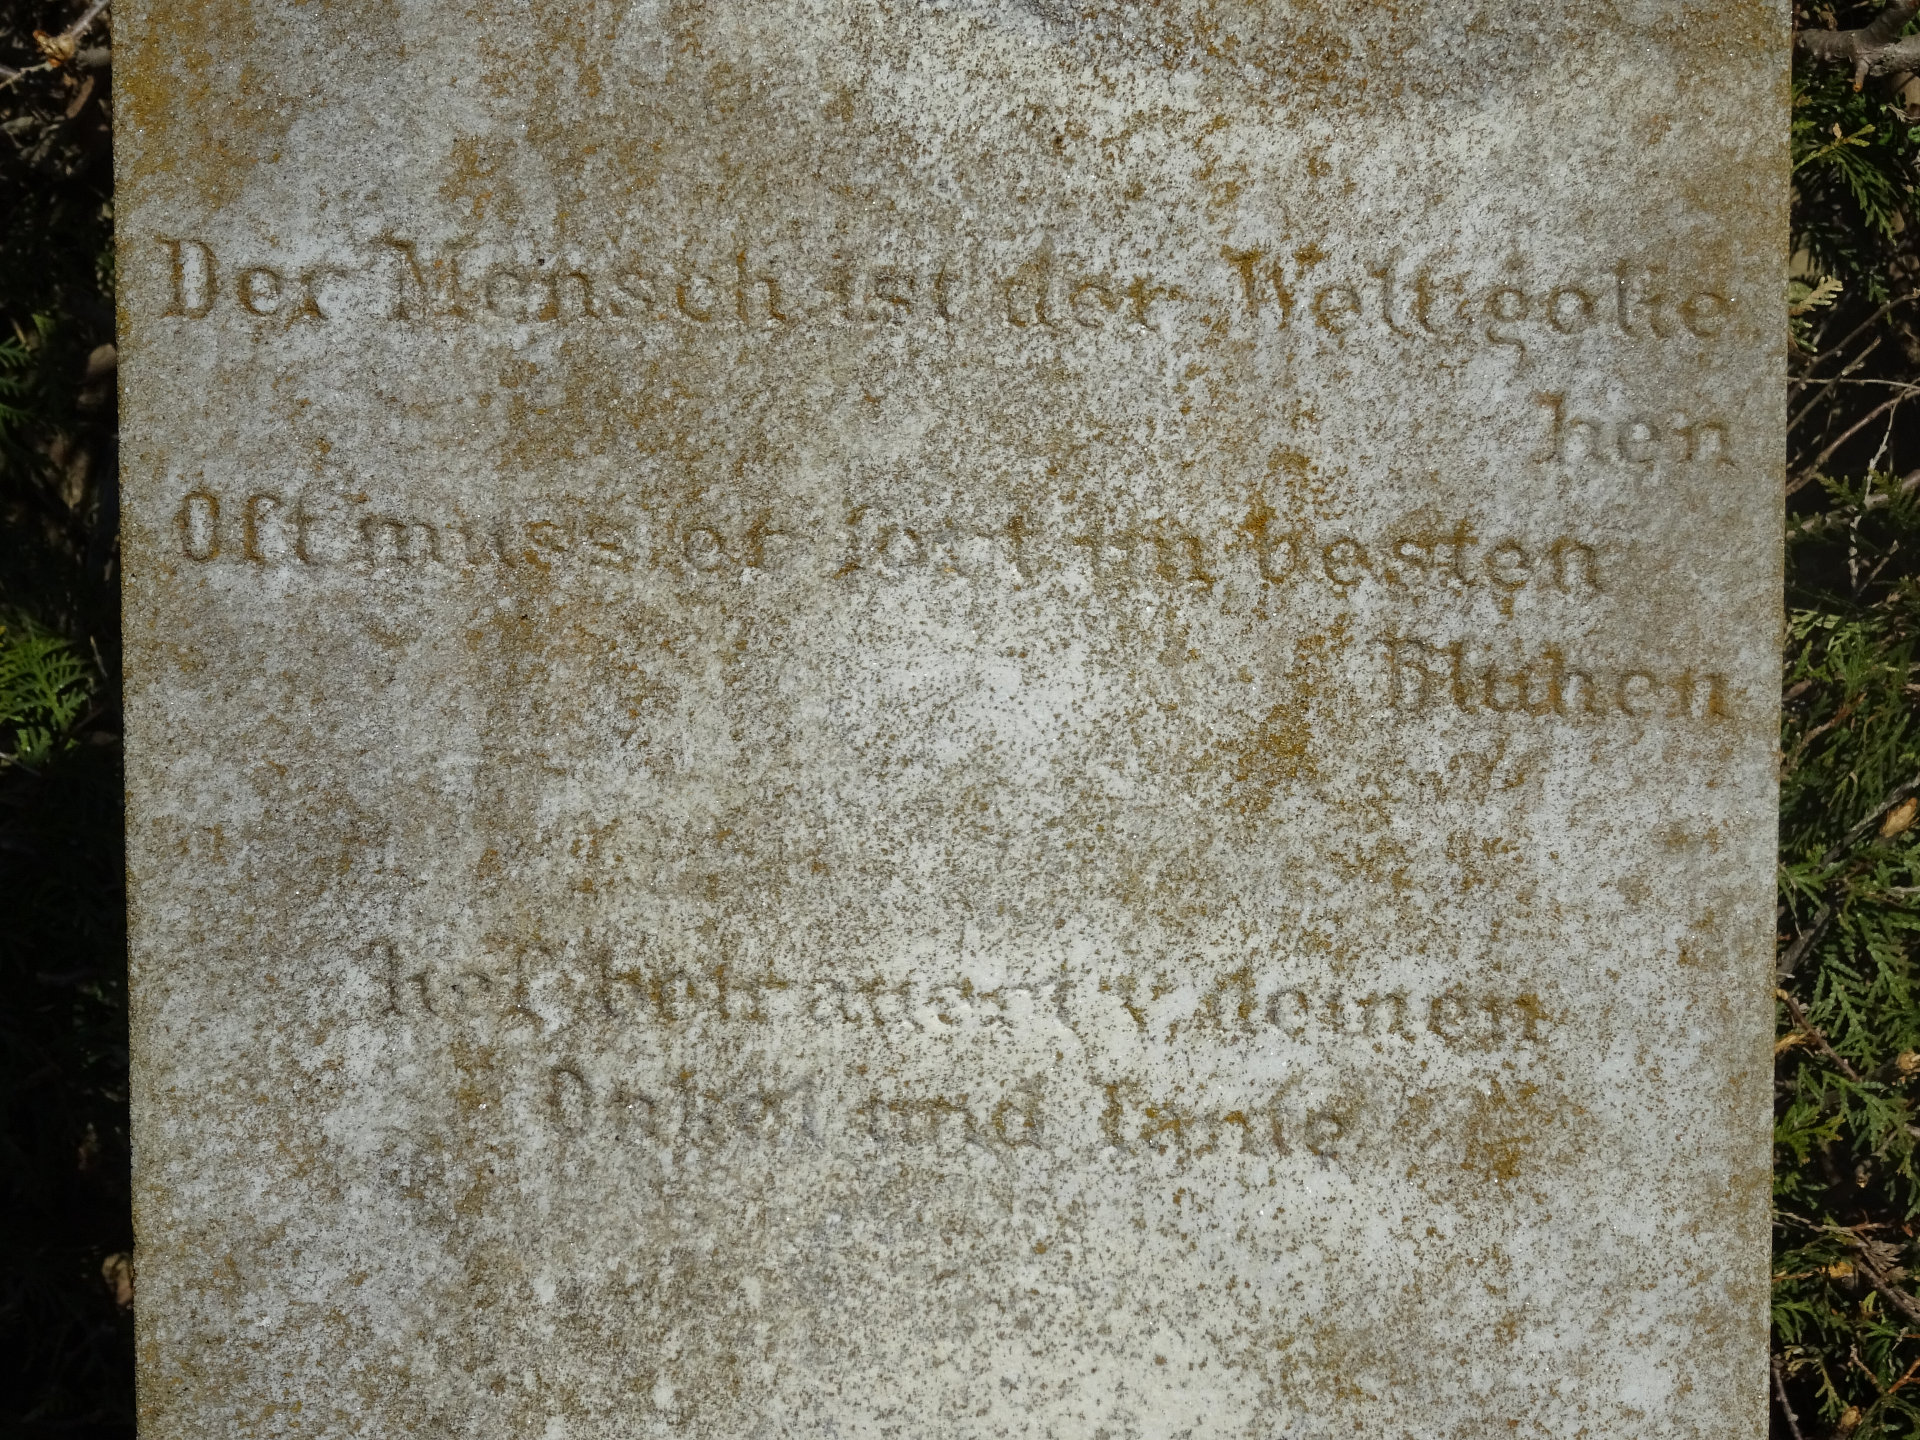 Der Mensch ist der Welt gelie
hen
Oft muss er fort im besten
Blühen
Tief betrauert v. deinen
Onkel und Tante